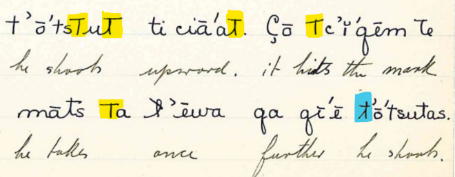 t'ō'tsTuT ti ciā'aT. Çō Tc'i'qēm te
he shoots upward. it hits the mark
māts Ta ƛ'ēwa qa qē'ē t'ō'tsutas.
he takes once further he shoots.